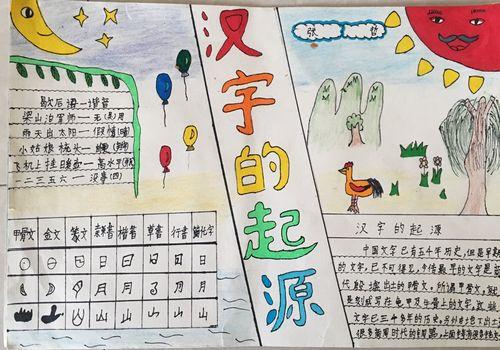 张
哲
汉字的起源
歇后语—谐音
梁山泊军师—无(吴)用
雨天出太阳—假情(晴)
小姑娘梳头—自便(辫)
飞机上挂暖壶—高水平(瓶)
二三五六—没事(四)
甲骨文 金文 篆文 隶书 楷书 草书 行书 简化字
日 日 日 日 日
月 月 月 月 月
山 山 山 山 山
汉字的起源
中国文字已有五千年历史,但是早期
的文字,已不可得见,今传最早的文字是
代殷墟出的甲骨文,所谓甲骨文,
是刻或写在龟甲及牛骨上的文字,
文字已三千多年的历史,
很多商周时代的铜器,上面